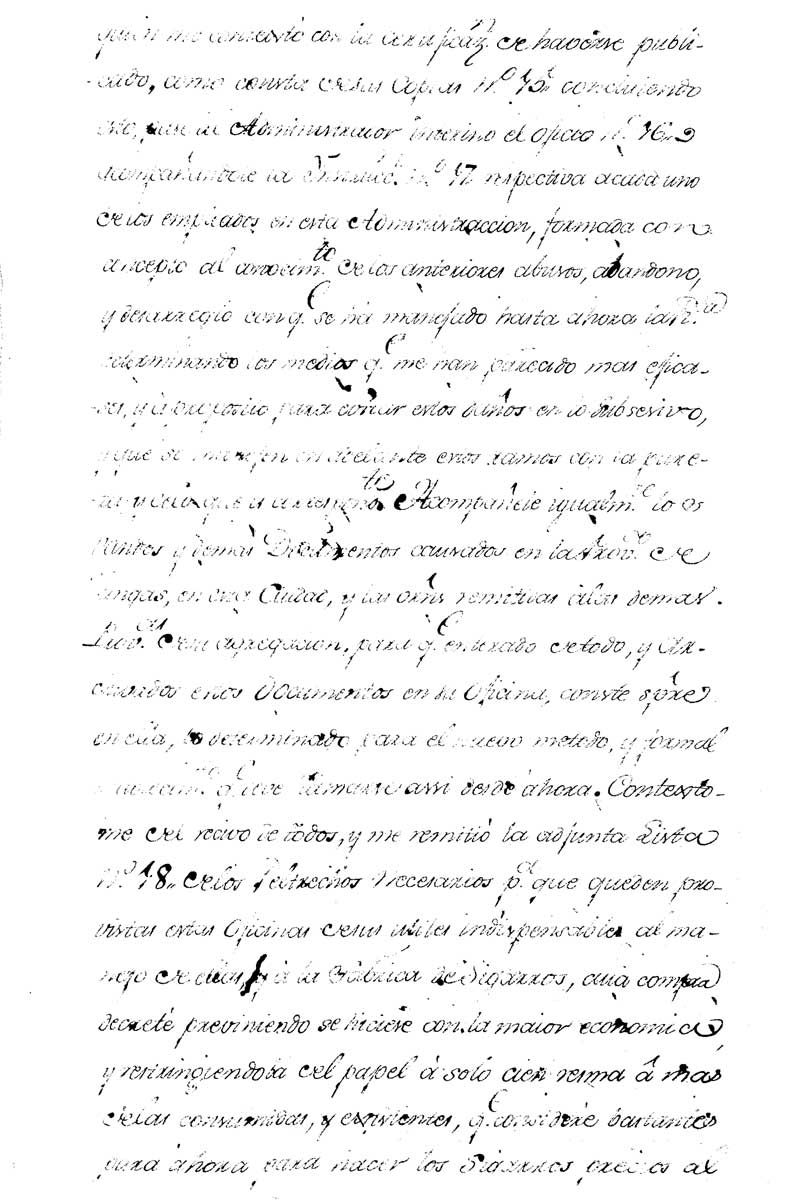 quien me contestó con la certificaz.n de haverse publi-
cado, como consta de las Copias N.º 15,, concluiendo
esto, pasé al Administrador interino el oficio n.º 16,, 
acompañandole la Instrucc.n n.º 17 respectiva a cada uno
de los empleados en esta Administraccion, formada con
concepto al conocim.to de los anteriores abusos, abandono,
y desarreglo con q.e se ha manejado hasta ahora la R.ta
determinando los medios q.e me han parecido mas efica-
ses, y a proposito para cortar estos daños en lo subsesivo,
y que se manejen en adelante estos ramos con la pure-
za y celo que es Acompañele igualm.te los
vandos y demas Documentos causados en la
en esta Ciudad, y las orn̂s remitivas a las demas
Prov.as de su agregacion, para q.e enterado de todo, y Ar-
chivados estos Documentos en su Oficina, conste spr̂e
en ella, lo determinado para el nuevo metodo, y formal
q.e deve llamarse assi desde ahora. Contexto-
me el recivo de todos, y me remitió la adjunta Lista
N.º 18,, de los Peltrechos Necesarios p.a que queden pro-
vistas estas Oficinas de sus utiles indispensables al ma-
nejo de ellas, y à la Fabrica de Sigarros, cuia compra
decreté previniendo se hiciese con la maior economia,
y restringiendola del papel á solo cien resma â mas
de las consumidas, y existentes, q.e consideré bastantes
para ahora para hacer los Sigarros precisos al